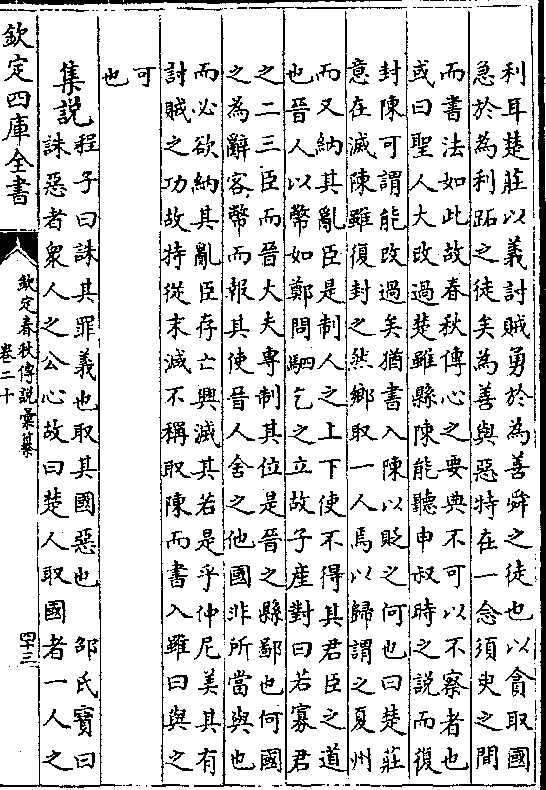 利耳楚莊以義討賊勇於為善舜之徒也以貪取國
急於為利跖之徒矣為善與惡特在一念須臾之間
而書法如此故春秋傳心之要典不可以不察者也
或曰聖人大改過楚雖縣陳能聽申叔時之說而復
封陳可謂能改過矣猶書入陳以貶之何也曰楚莊
意在滅陳雖復封之然鄉取一人焉以歸謂之夏州
而又納其亂臣是制人之上下使不得其君臣之道
也晉人以幣如鄭問駟乞之立故子產對曰若寡君
之二三臣而晉大夫專制其位是晉之縣鄙也何國
之為辭客幣而報其使晉人舍之他國非所當與也
而必欲納其亂臣存亡興滅其若是乎仲尼美其有
討賊之功故特從末減不稱取陳而書入雖曰與之
可
也
集說
程子曰誅其罪義也取其國惡也 邵氏寶曰
誅惡者衆人之公心故曰楚人取國者一人之
欽定四庫全書
欽定春秋傳說彙纂
卷二十
四十三